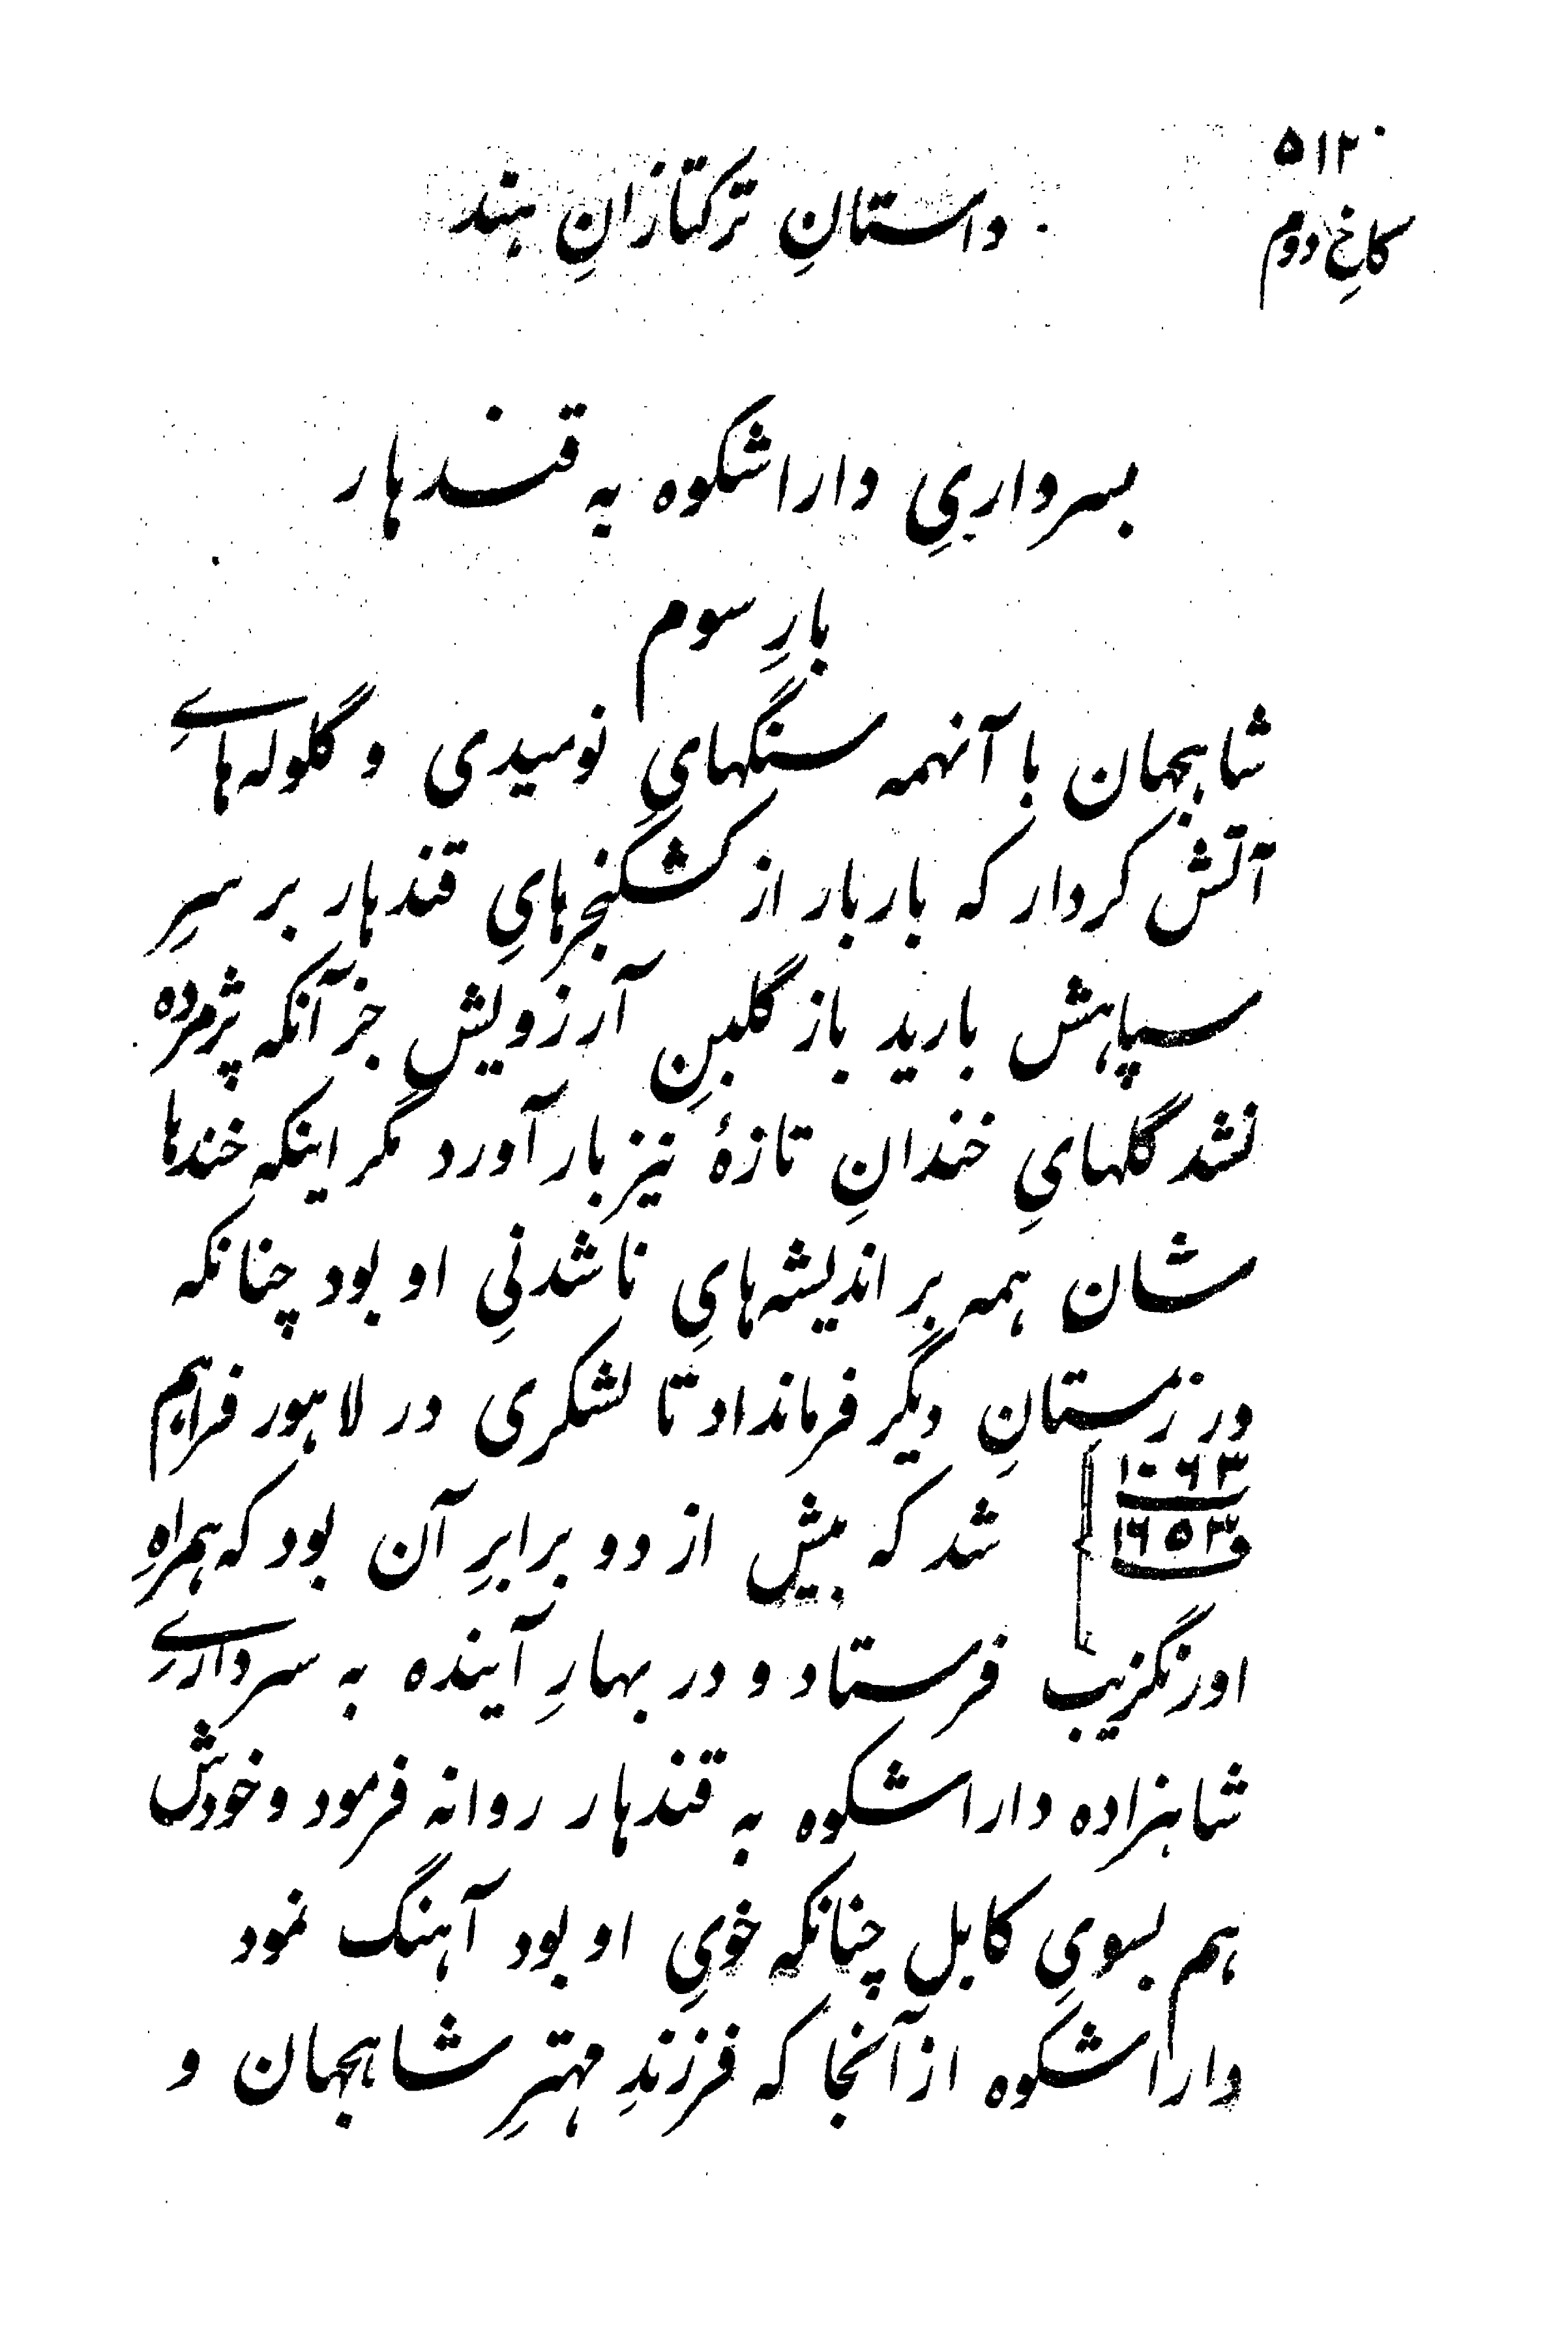 ۵۱۲
داستانِ ترکتازانِ هند
کاخِ دوم
بسرداریِ داراشکوه به قندهار
بارِ سوم
شاهجهان با آنهمه سنگهایِ نومیدی و گلوله‌هایِ
آتش کردار که باربار از کشکنجرهایِ قندهار بر سرِ
سپاهش بارید باز گلبنِ آرزویش جز آنکه پژمرده
نشد گلهایِ خندانِ تازهٔ نیز بار آورد مگر اینکه خندها
شان همه بر اندیشه‌هایِ ناشدنیِ او بود چنانکه
در زمستانِ دیگر فرمانداد تا لشکری در لاهور فراهم
۱۰۶۳
۱۶۵۳
شد که بیش از دو برابرِ آن بود که همراهِ
اورنگزیب فرستاد و در بهارِ آینده به سرداریِ
شاهزاده داراشکوه به قندهار روانه فرمود و خودش
هم بسویِ کابل چنانکه خویِ او بود آهنگ نمود
داراشکوه از آنجا که فرزندِ مهترِ شاهجهان و